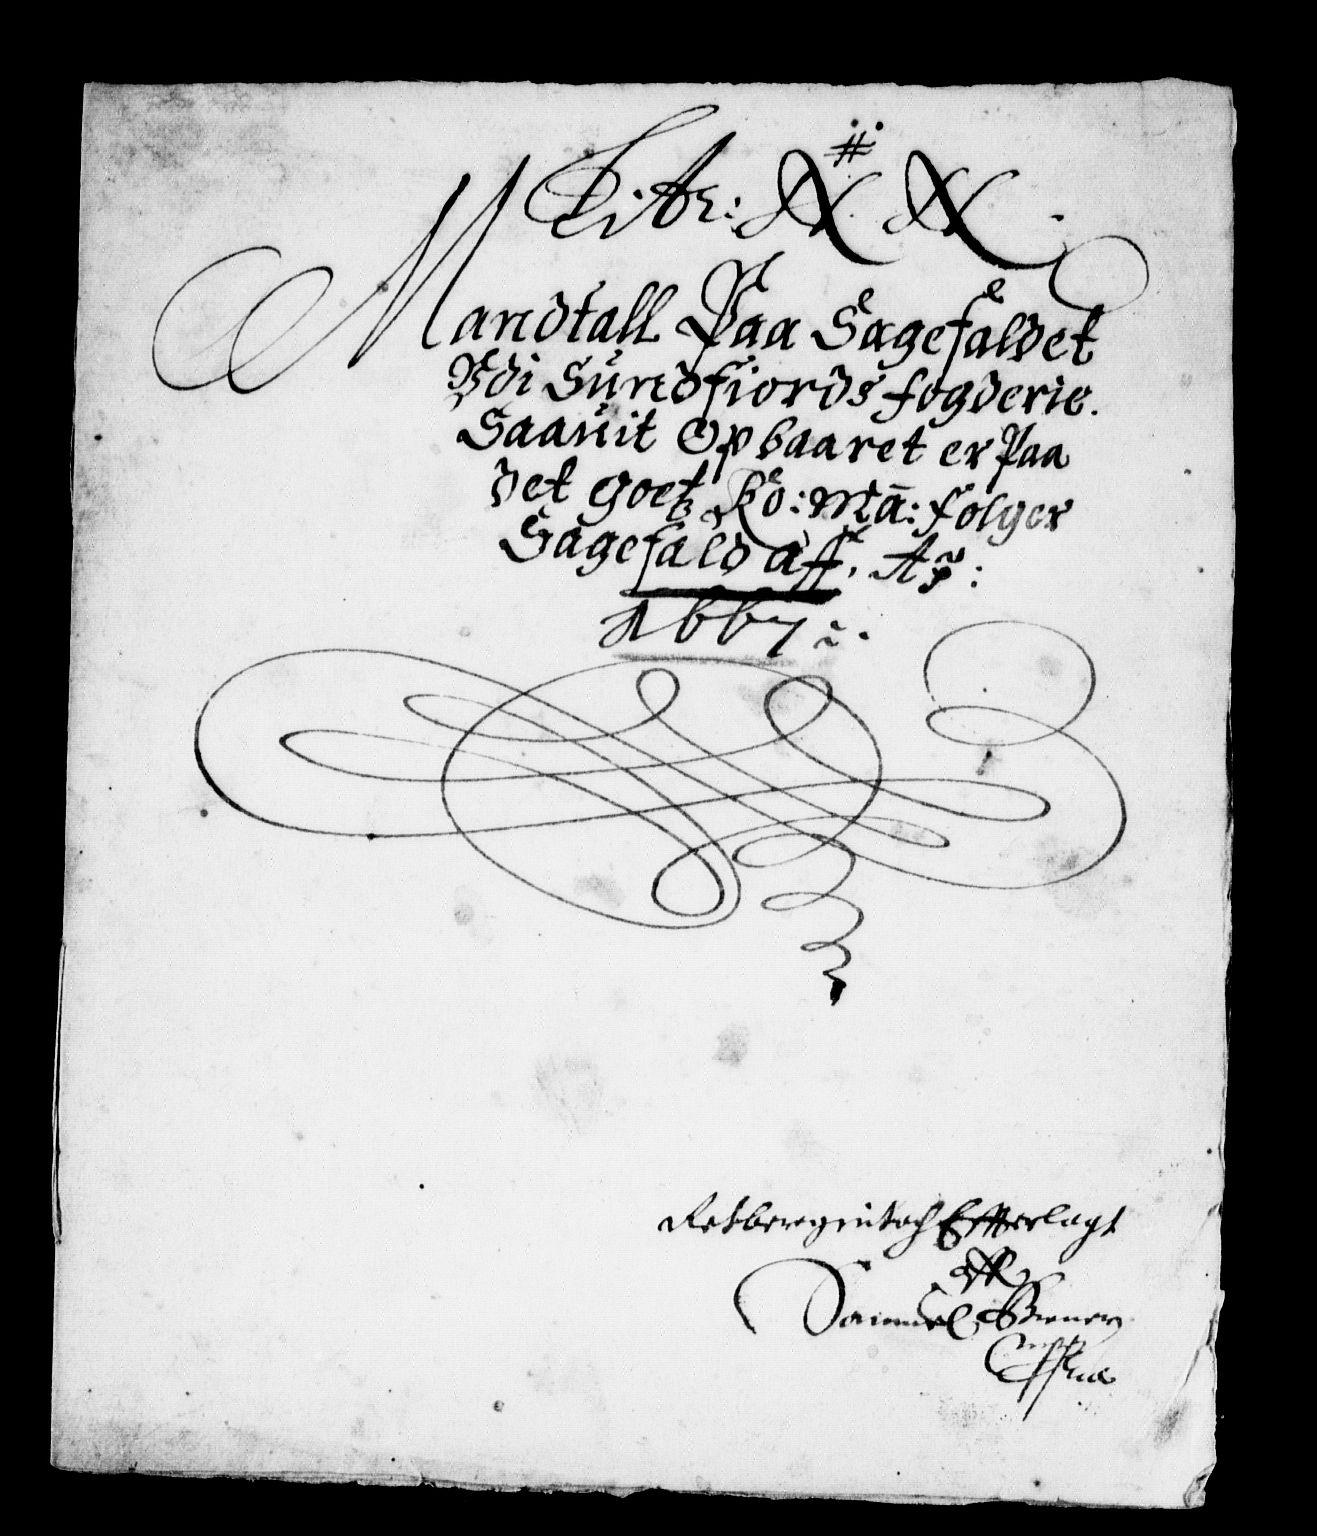 Litr: X X
Mandtall Paa Sagefaldet
Ydi Sundfiords fogderie.
Saauit Opbaaret er Paa
det goetz Ko: Ma: følger
Sagefald aff. Aō:
1667
Efterlagt
aff
Samuel